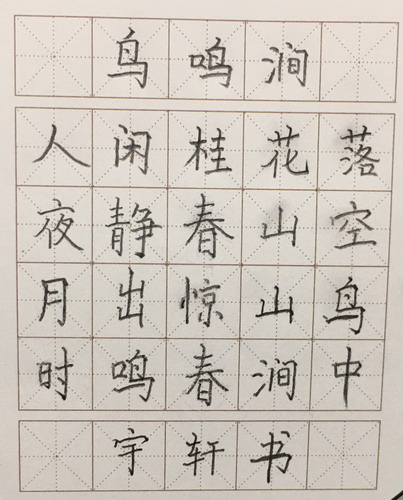 鸟鸣涧
人闲桂花落
夜静春山空
月出惊山鸟
时鸣春涧中
宇轩书